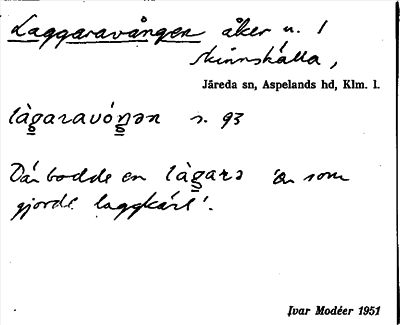 Laggaravången åker n. 1
Skinnskälla,
Järeda sn, Aspelands hd, Klm. l.
làgaravóŋən s. 93
Där bodde en làgarə 'en som
gjorde laggkärl'.
Ivar Modéer 1951